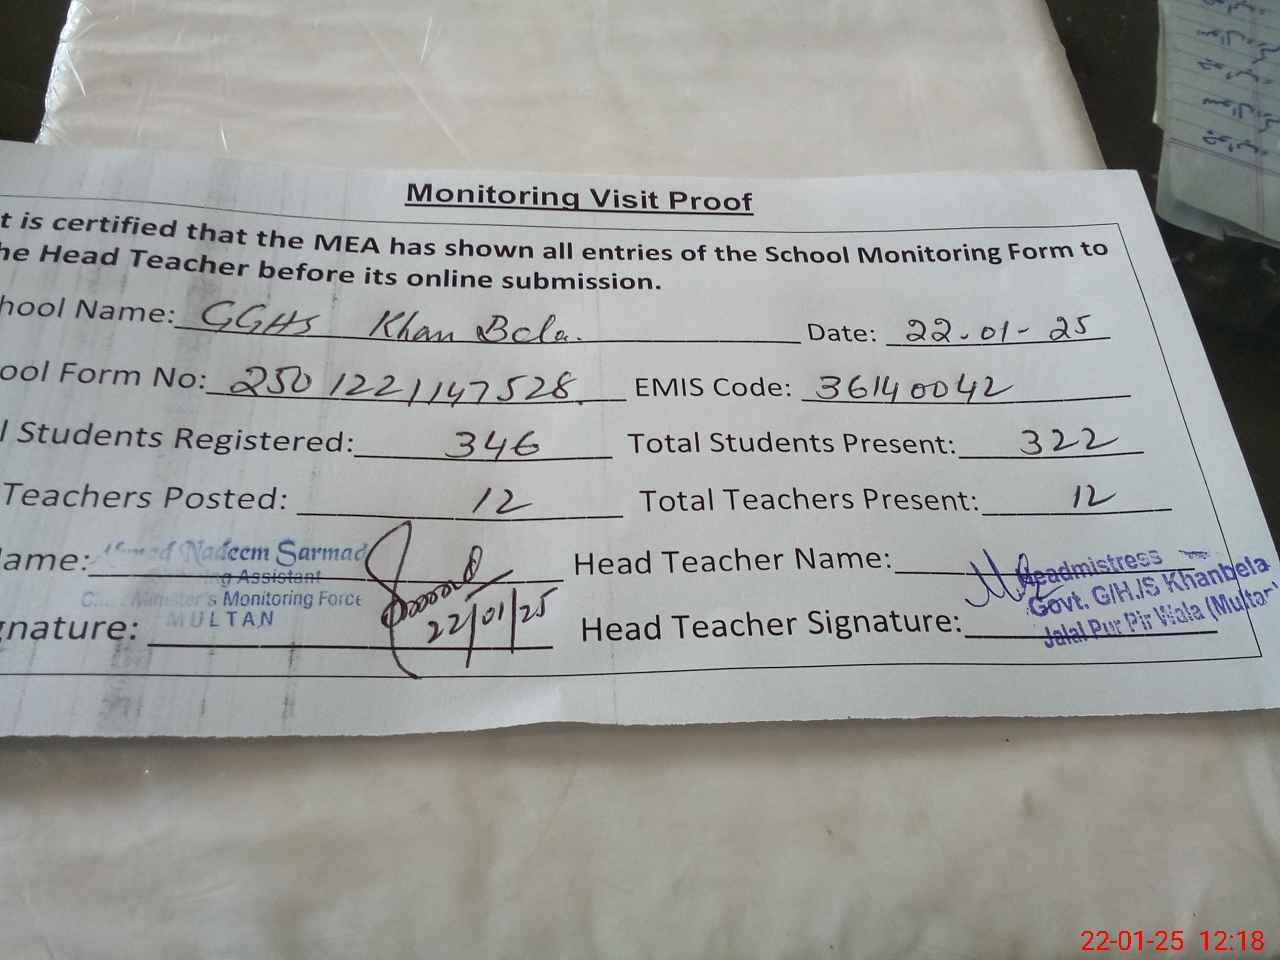 Monitoring Visit Proof
t is certified that the MEA has shown all entries of the School Monitoring Form to
he Head Teacher before its online submission.
hool Name: GGHS Khan Bela. Date: 22-01-25
ool Form No: 2501221147528 EMIS Code: 36140042
l Students Registered: 346 Total Students Present: 322
Teachers Posted: 12 Total Teachers Present: 12
ame: Nadeem Sarmad Head Teacher Name:
Assistant
Monitoring Force
MULTAN
gnature: 22/01/25 Head Teacher Signature:
Headmistress
Govt. G/H./S Khanbela
Jalal Pur Pir Wala (Multan)
22-01-25 12:18